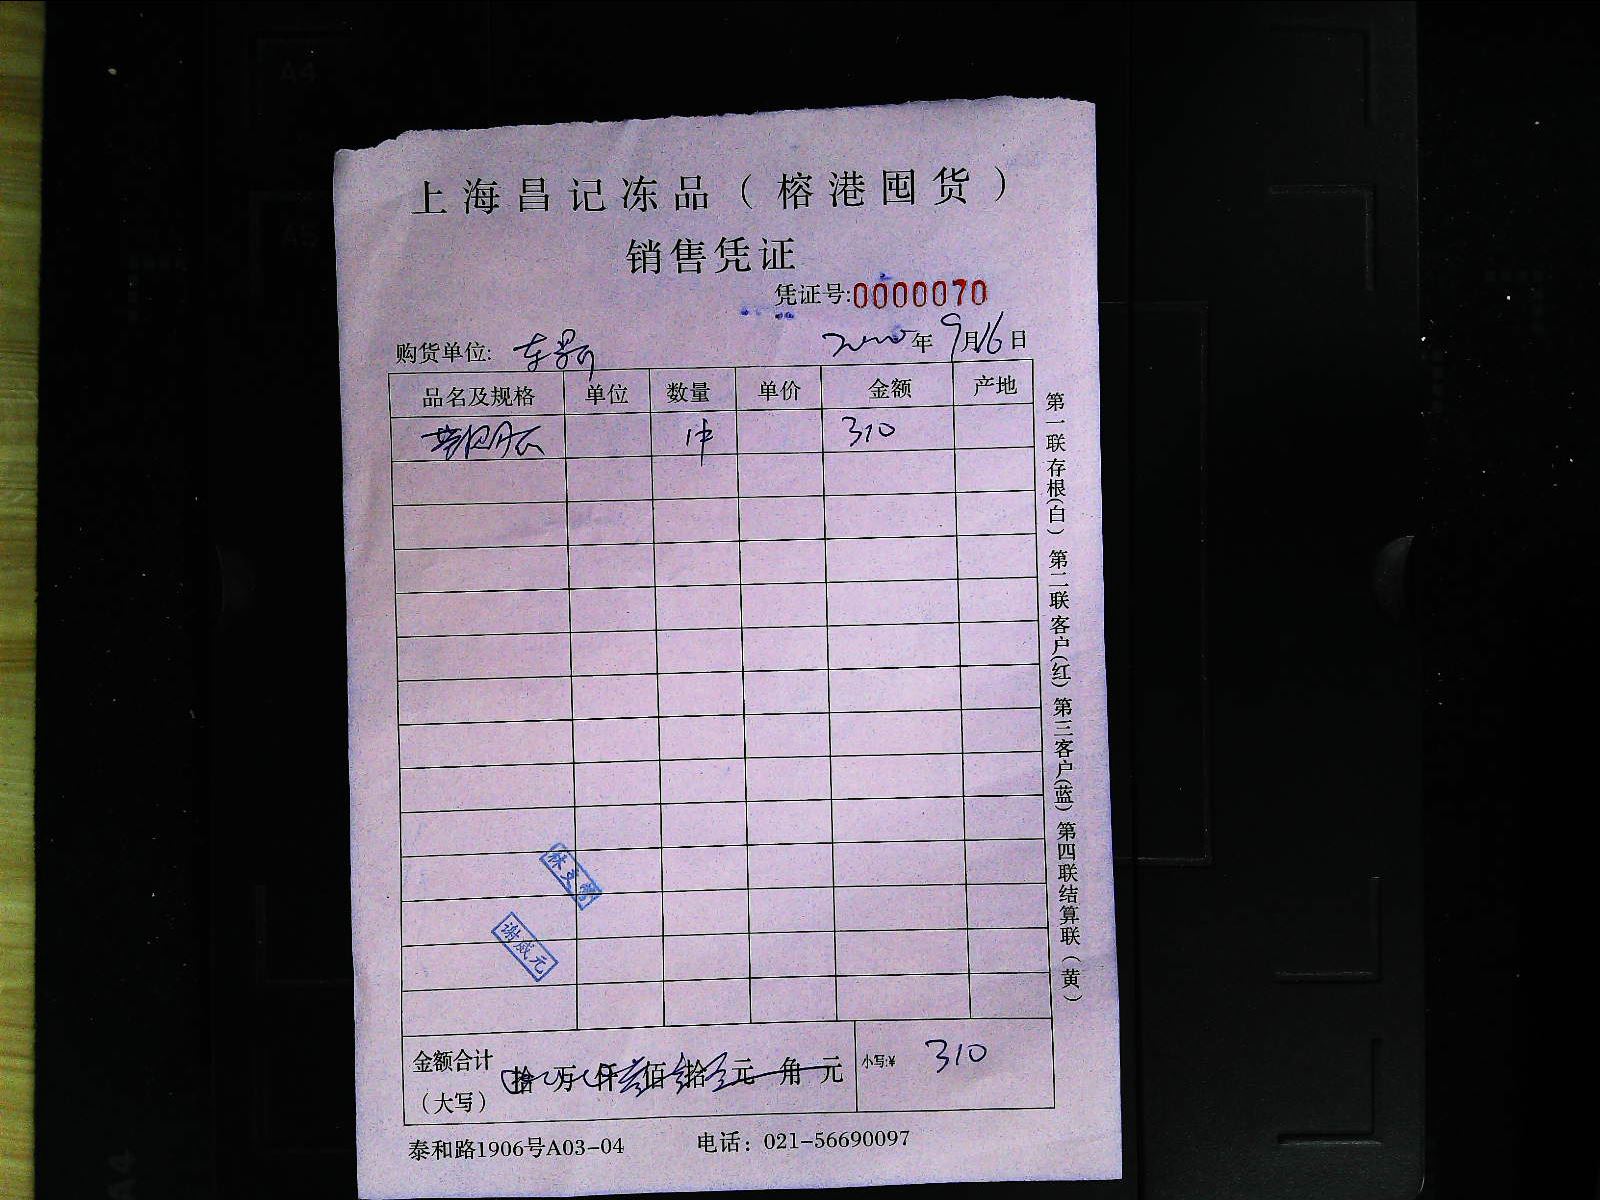 上海昌记冻品（榕港囤货）
销售凭证
凭证号:0000070
购货单位: 年 9月16日
品名及规格 单位 数量 单价 金额 产地
1件 310
林文
谢威元
金额合计（大写） 拾 万 仟 佰 拾 元 角 元 小写:¥ 310
泰和路1906号A03-04 电话：021-56690097
第一联存根(白) 第二联客户(红) 第三客户(蓝) 第四联结算联(黄)
A4
A5
A4